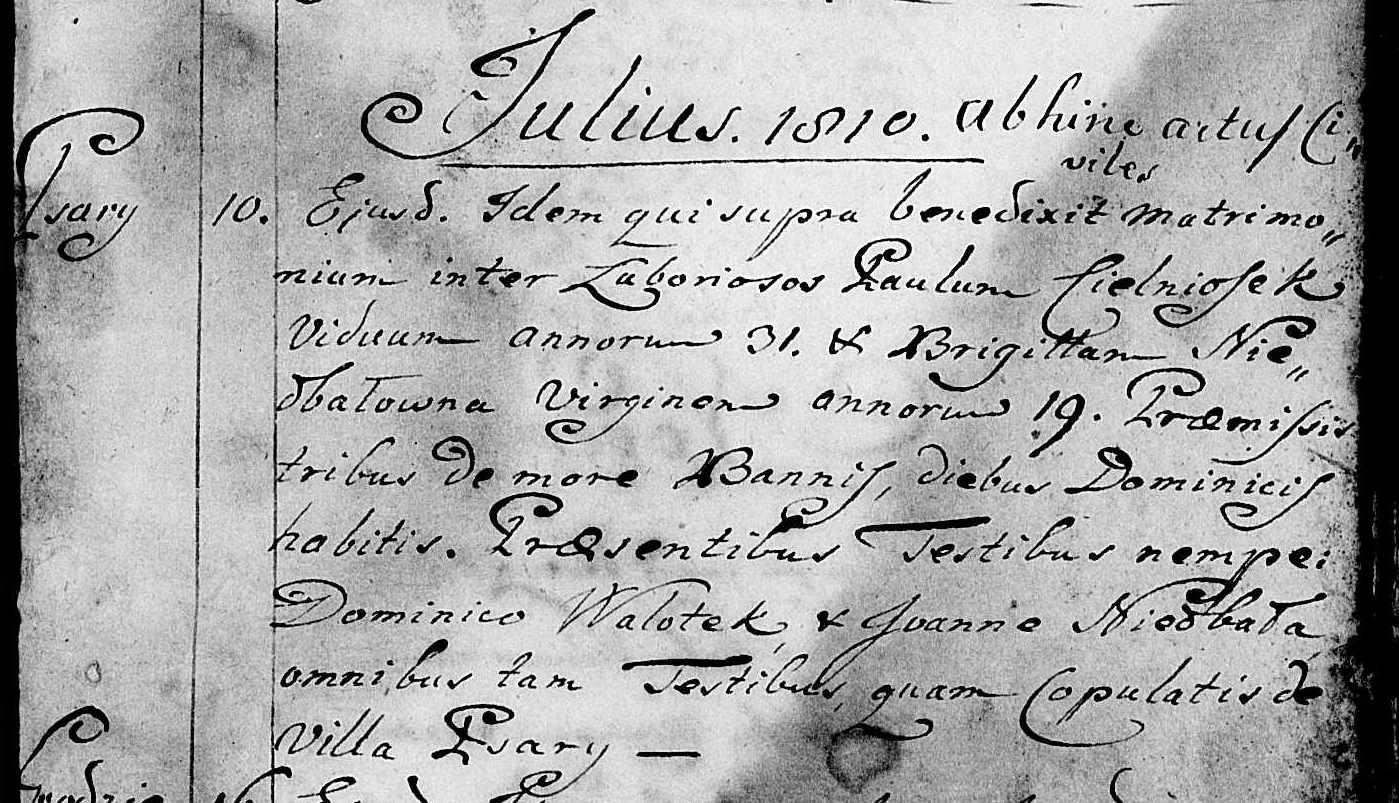 Julius. 1810. abhinc actus Ci„
viles
Psary 10. Ejusd. Idem qui supra benedixit matrimo„
nium inter Laboriosos Paulum Cielniosek
Viduum annorum 31. & Brigittam Nie„
dbałowna Virginem annorum 19. Præmissis
tribus de more Bannis, diebus Dominicis
habitis. Præsentibus Testibus nempe:
Dominico Walotek, & Joanne Niedbała
omnibus tam Testibus, quam Copulatis de
Villa Psary —